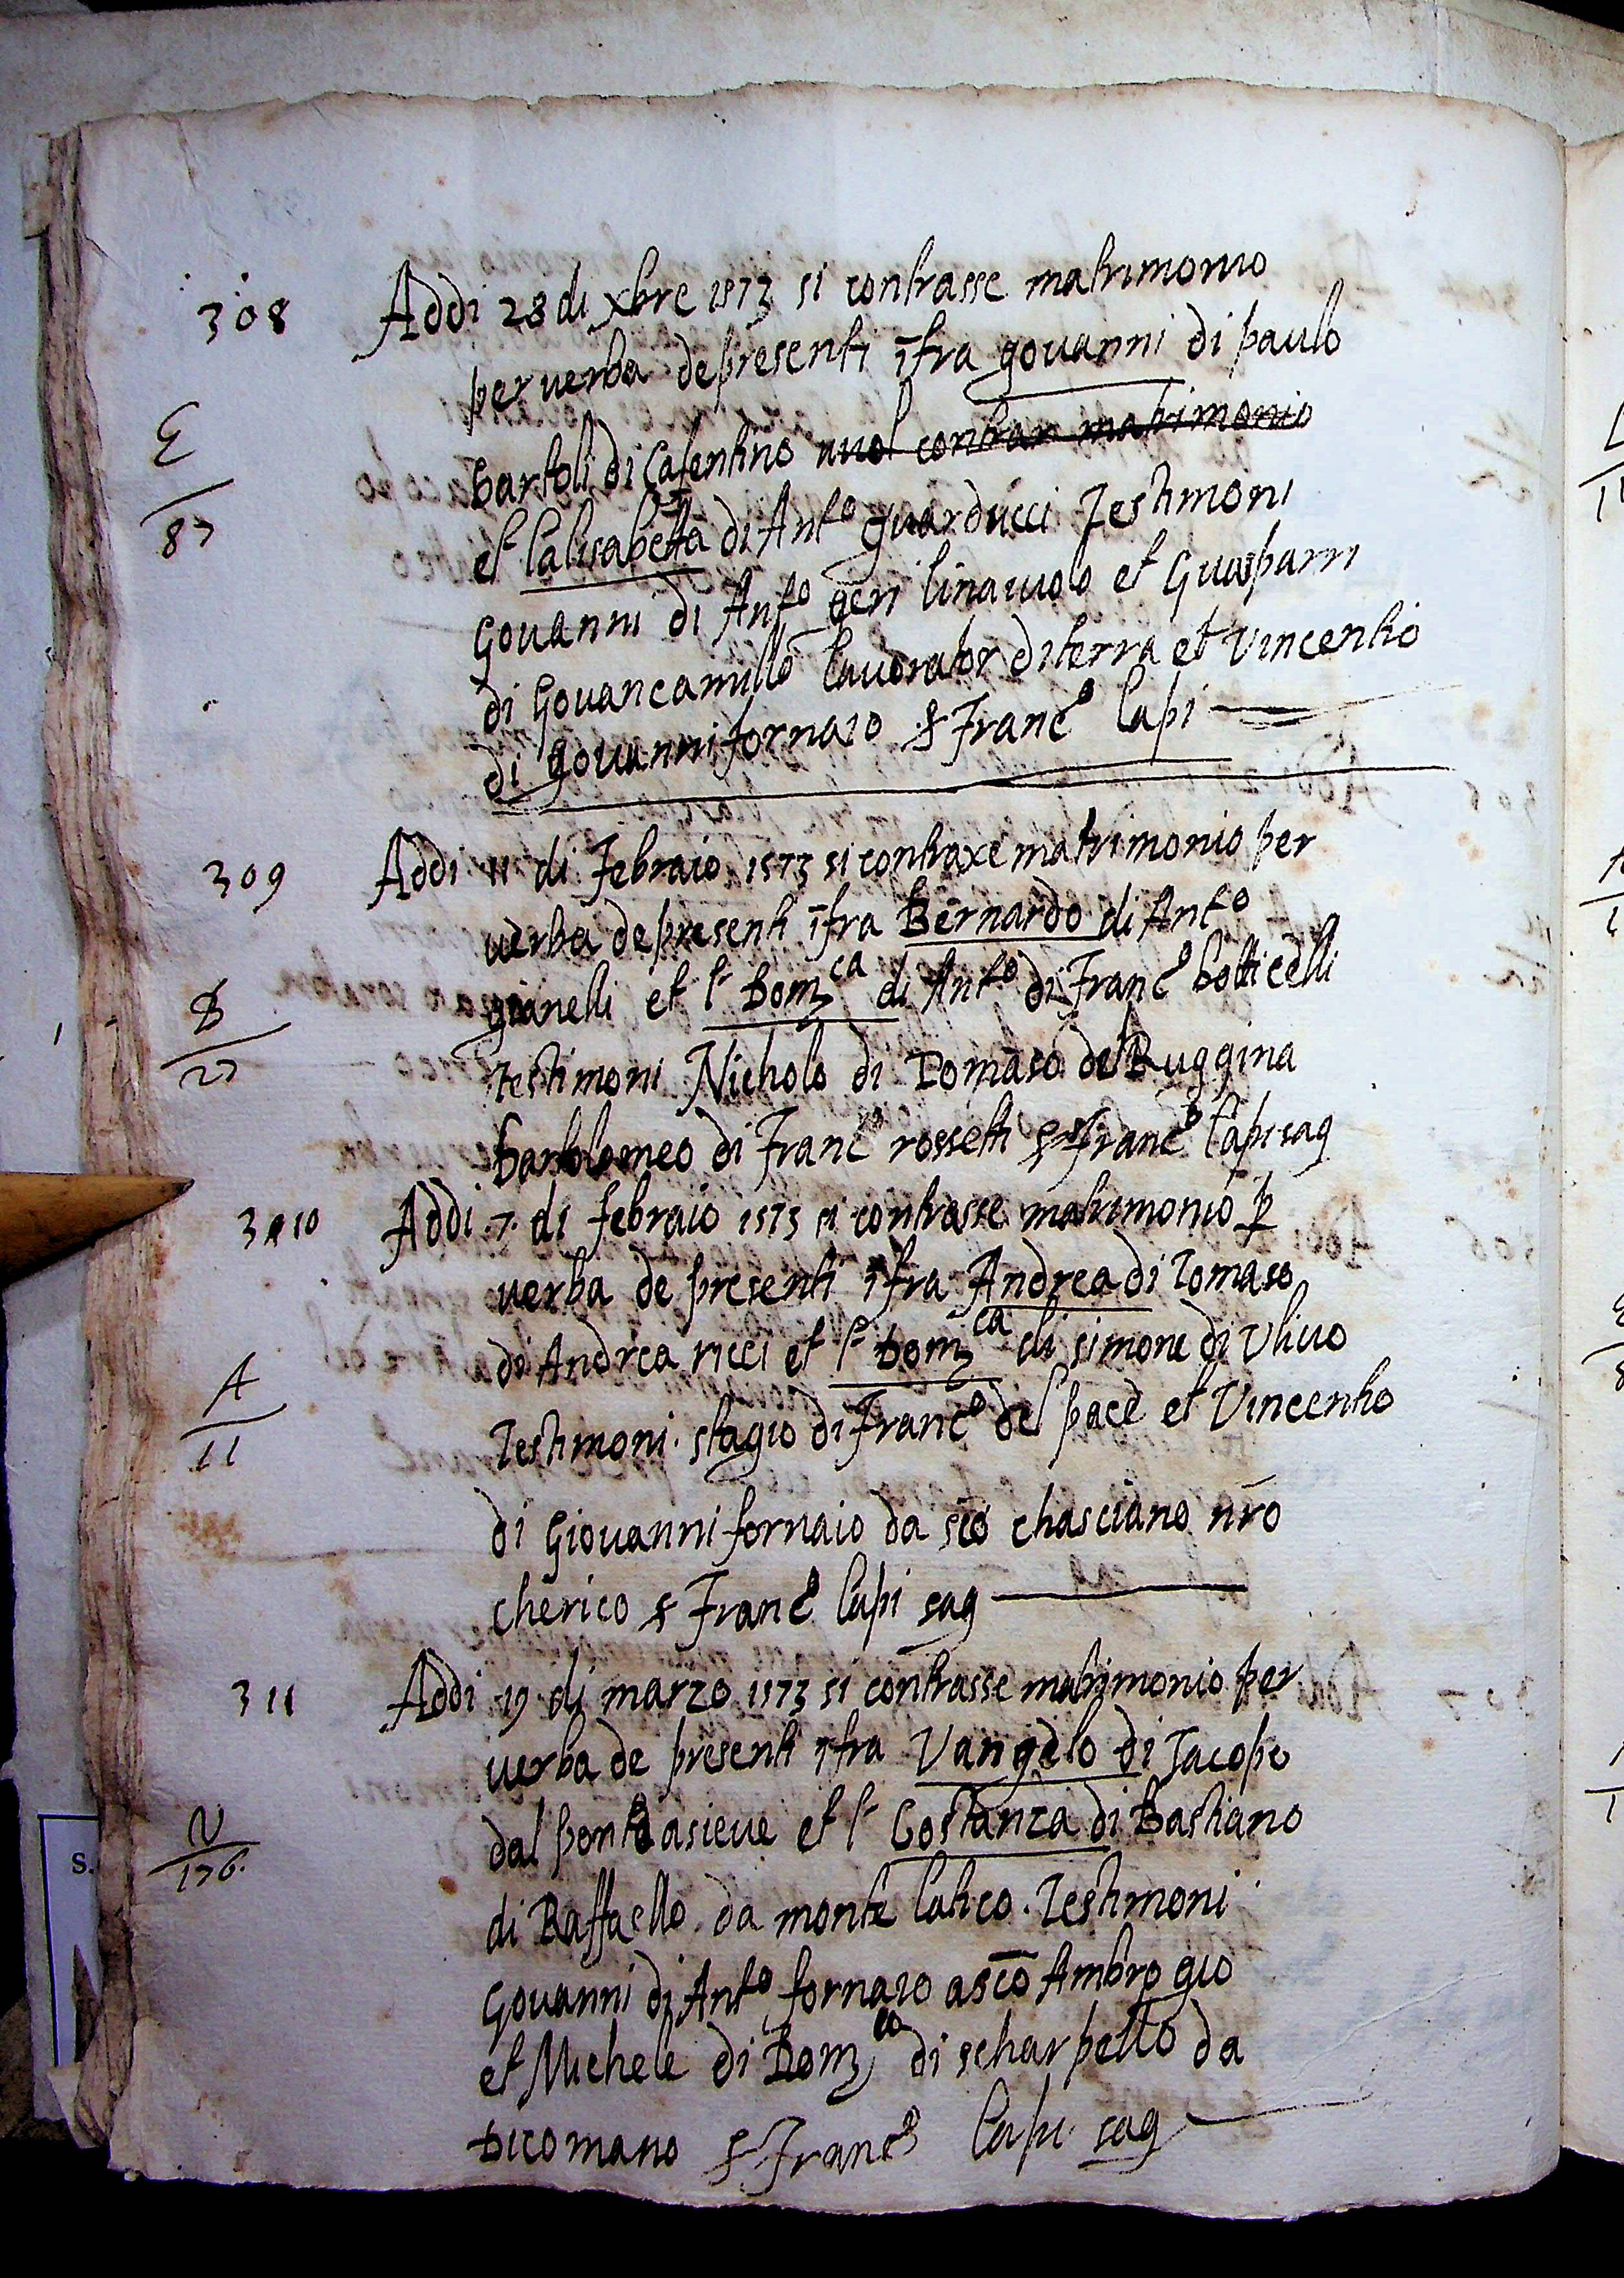 308 Addi 28 di xbre 1573 si contrasse matrimonio
per verba de presenti īfra govanni di paulo
bartoli di Casentino vuol contrar matrimonio
E
87
et lalisabetta di Antº guarducci Testimoni
Govanni di Antº geri linaiuolo et Guasparri
di Govancamillo lavorator di terra et Vincentio
di govanni fornaio Francº lapi
309 Addi 11 di Febraio 1573 si contraxe matrimonio per
verba de presenti īfra Bernardo di Antº
gianelli et lª Domca di Antº di Francº botticelli
B
27
testimoni Nicholo di Tomaso del Ruggina
bartolomeo di Francº rossetti Francº lapi sag
310 Addi .7. di febraio 1573 si contrasse matrimonio p
verba de presenti īfra Andrea di Tomaso
di Andrea ricci et lª Domca di simone di Ulivo
A
11
Testimoni. stagio di Francº del pace et Vincentio
di Giovanni fornaio da sco chasciano nro
cherico Francº lapi sag
311 Addi 19 di marzo 1573 si contrasse matrimonio per
verba de presenti īfra Vangelo di Jacopo
dal ponte asieve et lª Costanza di Bastiano
V
176.
di Raffaello da monte latico. Testimoni
Govanni di Antº fornaio a sco Ambrogio
et Michele di Domco di scharpello da
Dicomano Francº lapi sag